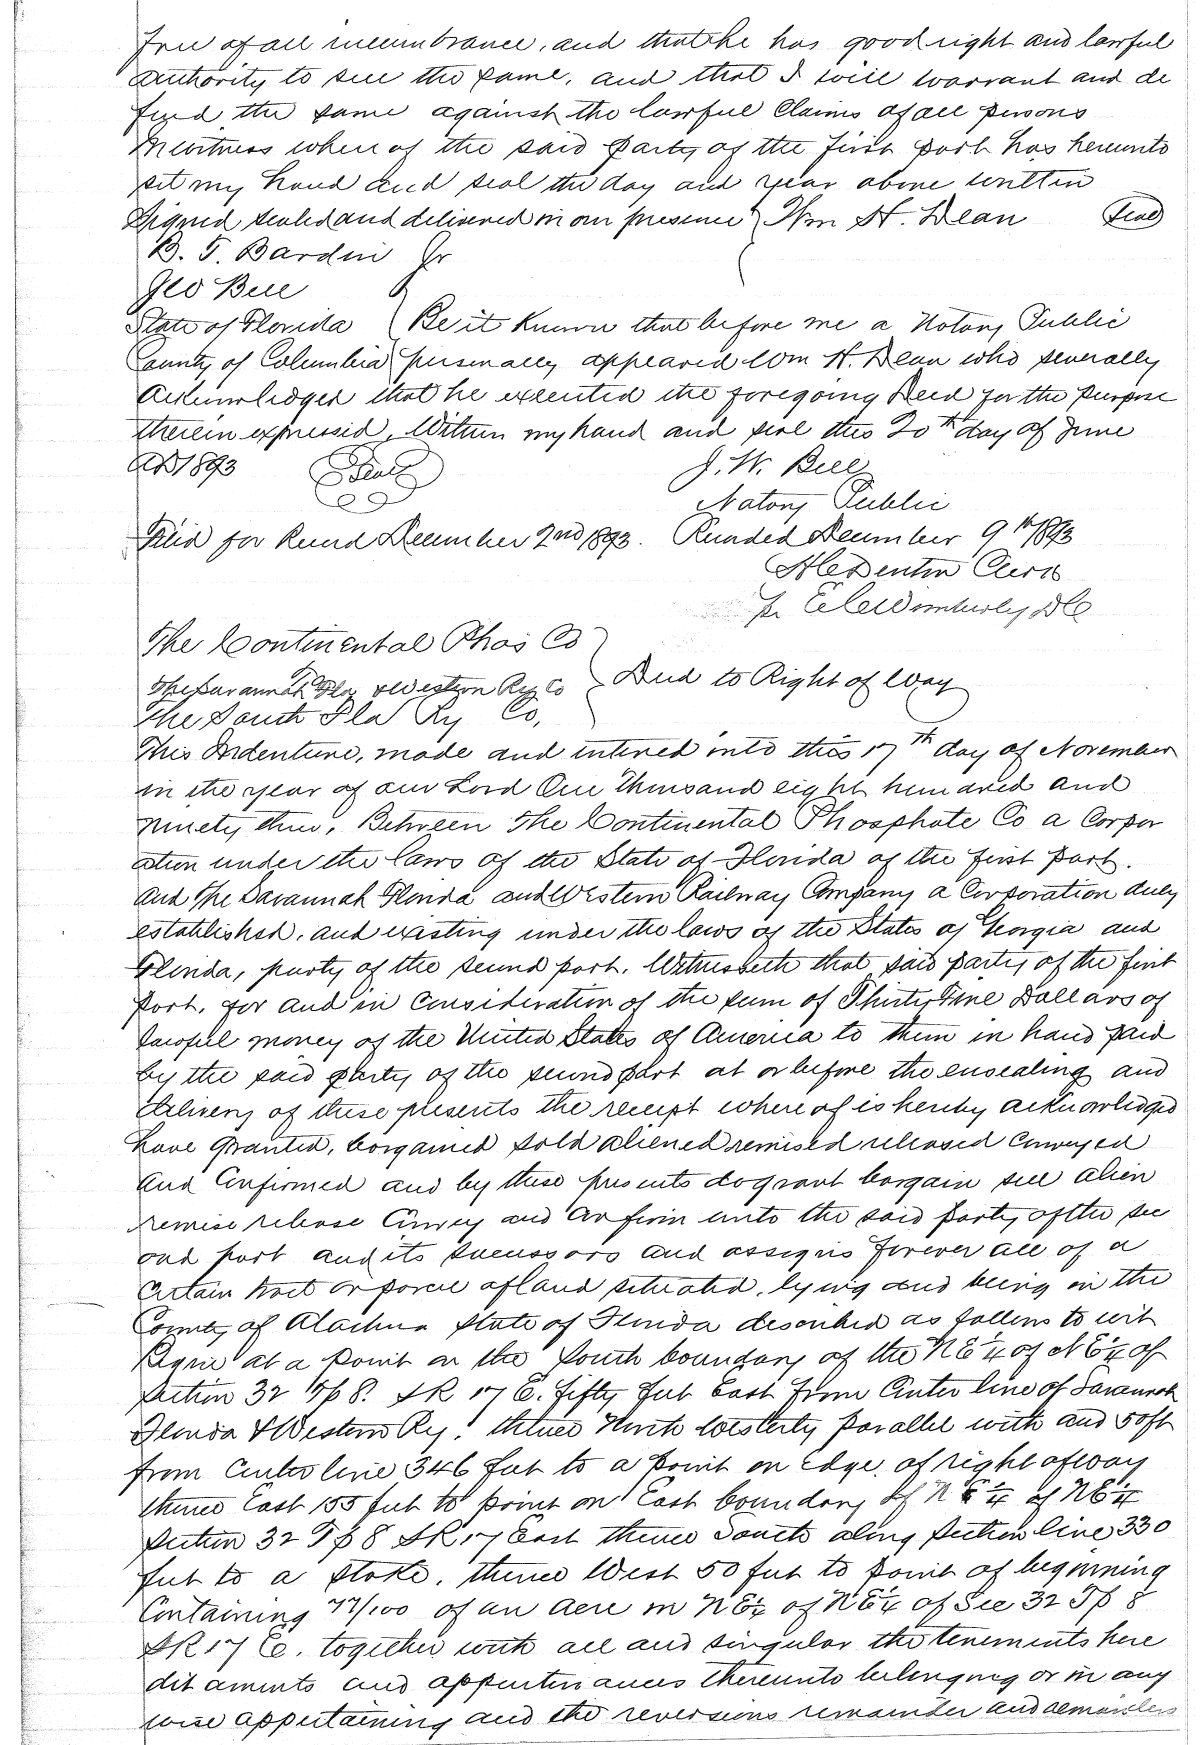 free of all incumbrance, and that he has good right and lawful
authority to sell the same, and that I will warrant and de
fend the same against the lawful Claims of all persons
In witness where of the said party of the first part has hereunto
set my hand and seal the day and year above written
Signed sealed and delivered in our presence } Wm H. Dean (Seal)
B. F. Bardin Jr
Geo Bell
State of Florida } Be it Known that before me a Notary Public
County of Columbia } personally appeared Wm H. Dean who severally
Acknowledged that he executed the foregoing Deed for the purpose
therein expressed, Witness my hand and seal this 20th day of June
AD 1893 (Seal) J. W. Bell
Notary Public
Filed for Record December 2nd 1893. Recorded December 9th 1893
H C Denton Clerk
pr Wimberly DC
The Continental Phos Co
To
The Savannah Fla & Western Ry Co } Deed to Right of Way
The South Fla Ry Co,
This Indenture, made and entered into this 17th day of November
in the year of our Lord One Thousand eight hundred and
ninety three, Between The Continental Phosphate Co a Corpor
ation under the laws of the State of Florida of the first part.
and The Savannah Florida and Western Railway Company a Corporation duly
established, and existing under the laws of the States of Georgia and
Florida, party of the second part. Witnesseth that said party of the first
part, for and in Consideration of the sum of Thirty Five Dollars of
lawful money of the United States of America to them in hand paid
by the said party of the second part at or before the ensealing and
delivery of these presents the receipt where of is hereby acknowledged
have granted, bargained sold aliened remised released Conveyed
and Confirmed and by these presents do grant bargain sell alien
remise release Convey and Confirm unto the said party of the sec
ond part and its successors and assigns forever all of a
Certain tract or parcel of land situated, lying and being in the
County of Alachua State of Florida described as follows to wit
Begin at a point on the South boundary of the NE¼ of NE¼ of
Section 32 Tp 8. S R 17 E. fifty feet East from Center line of Savannah
Florida & Western Ry. thence North Westerly parallel with and 50 ft
from Center line 346 feet to a point on Edge of right of way
thence East 155 feet to point on East boundary of NE¼ of NE¼
Section 32 Tp 8 S R 17 East thence South along Section line 330
feet to a stake, thence West 50 feet to point of beginning
Containing 77/100 of an acre in NE¼ of NE¼ of Sec 32 Tp 8
S R 17 E. together with all and singular the tenements here
dit aments and appurtenances thereunto belonging or in any
wise appertaining and the reversions remainder and remainders